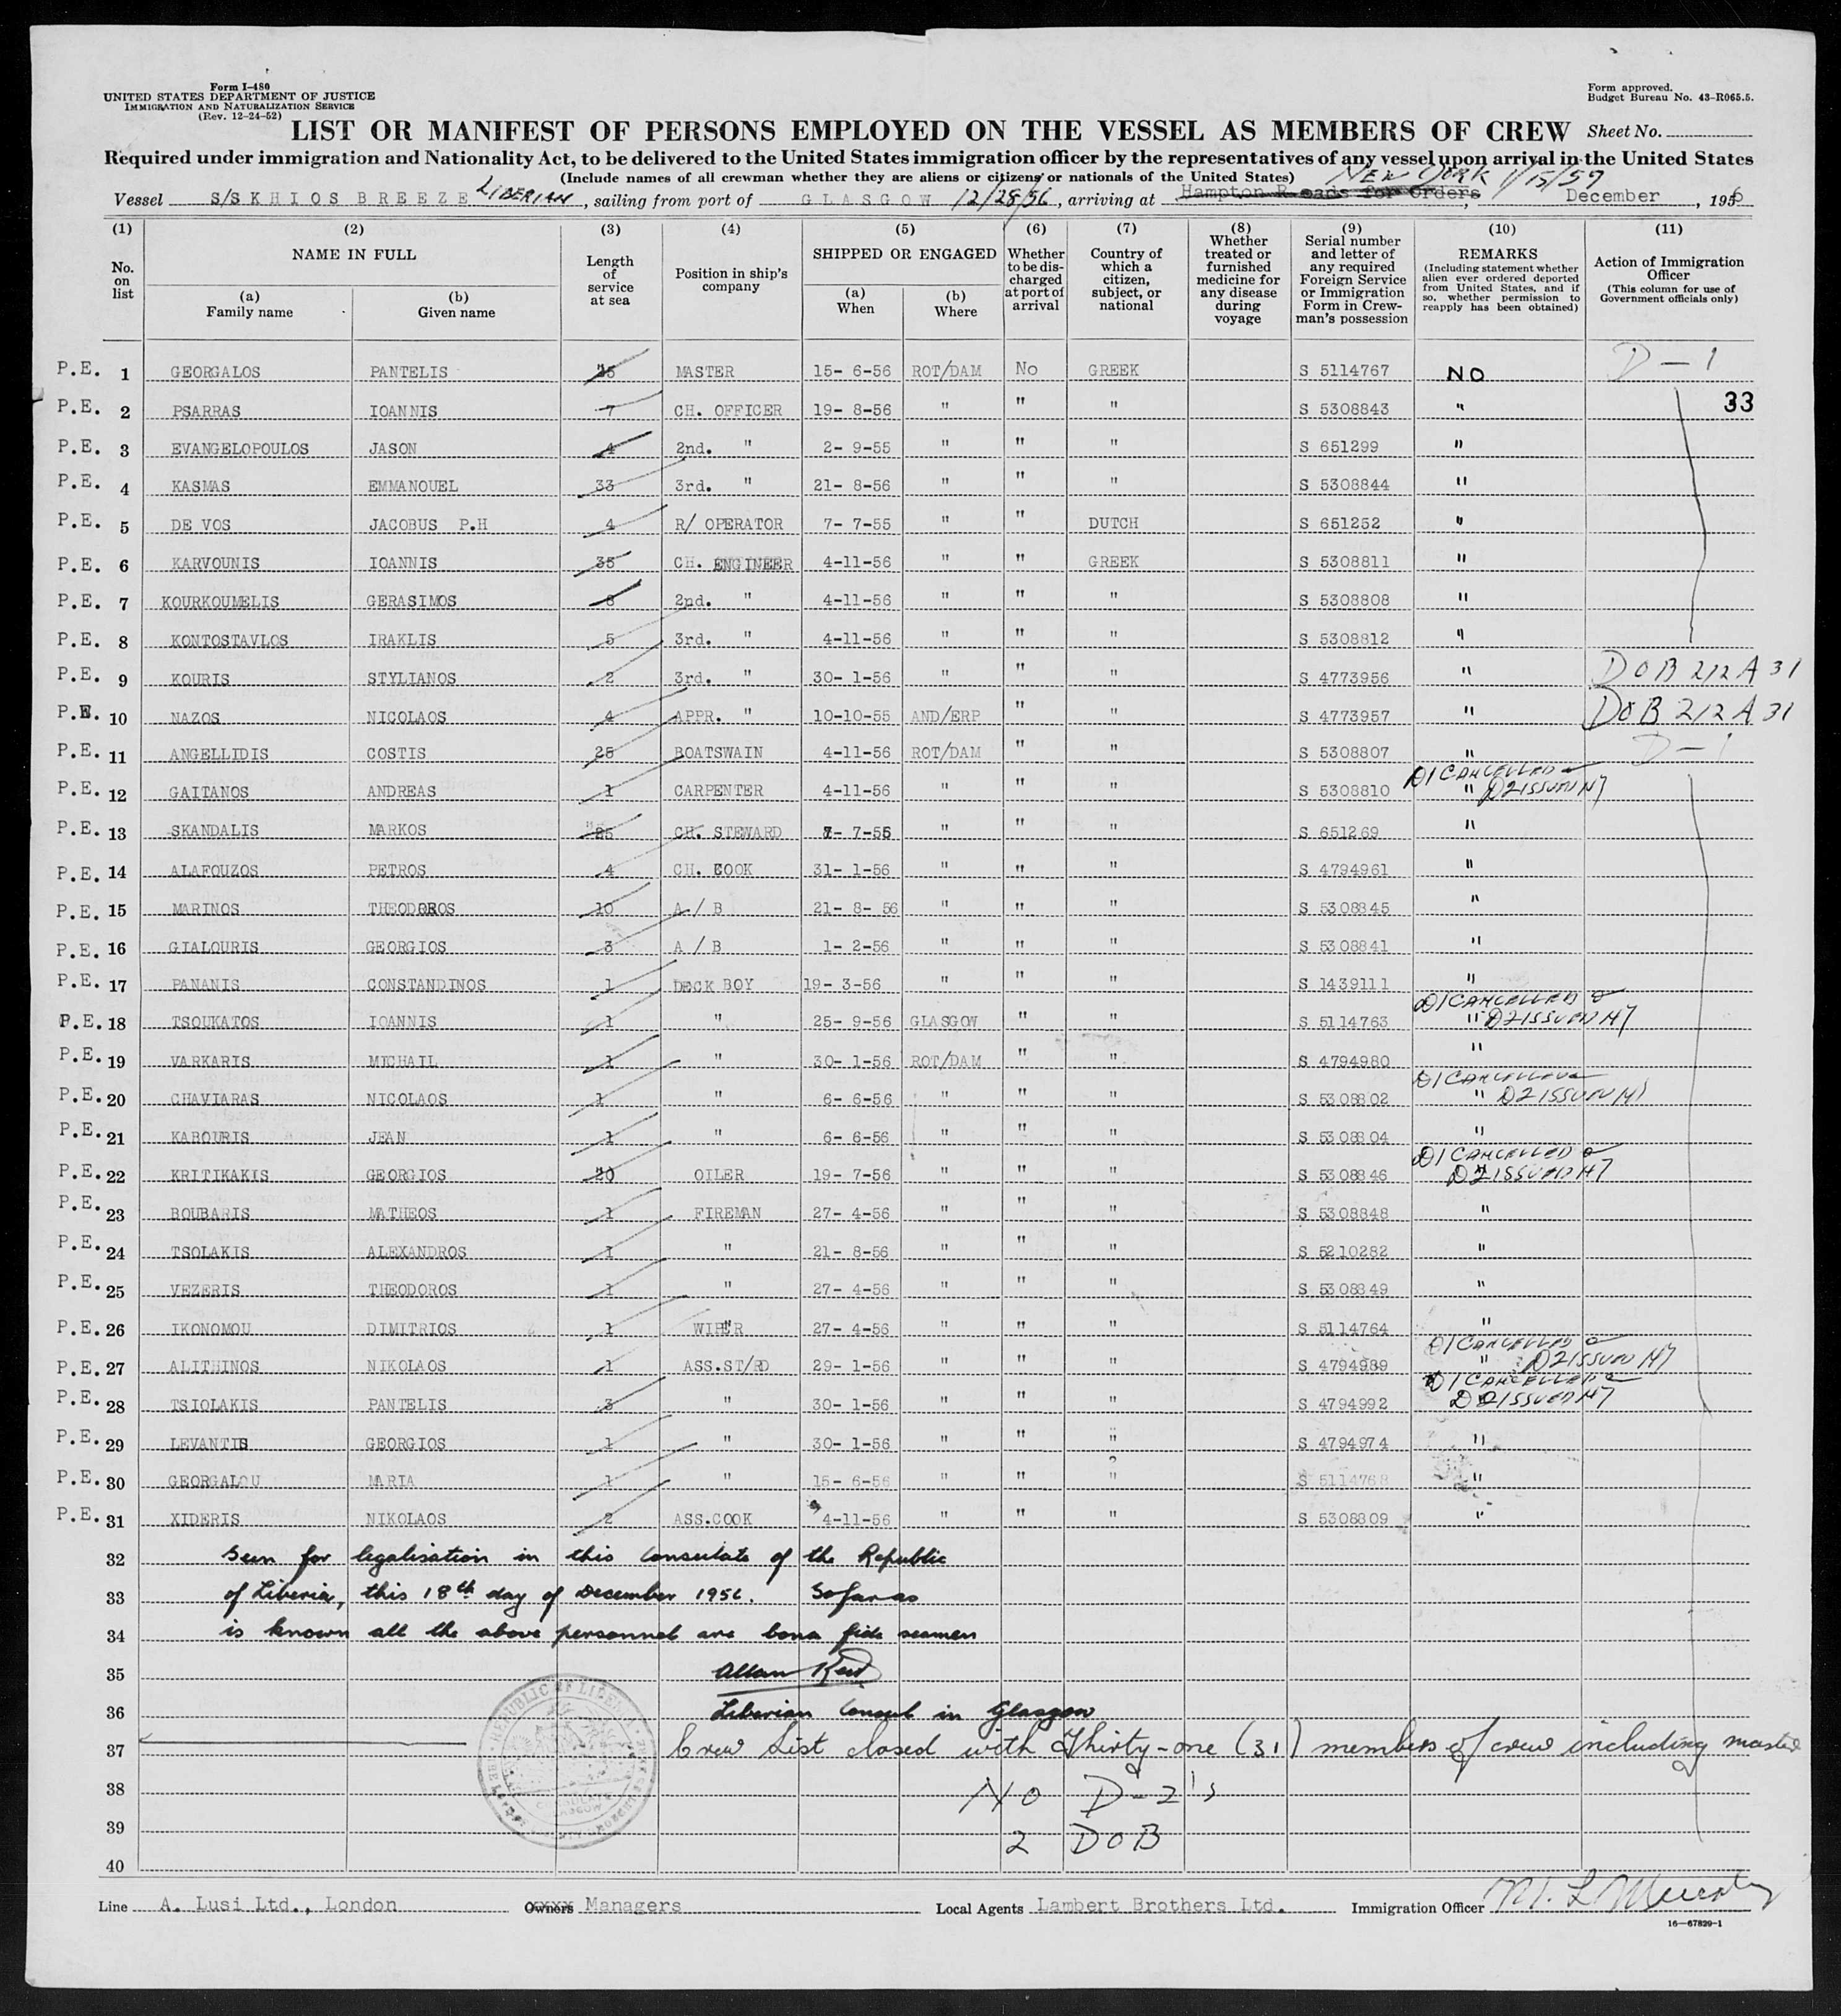 Form I-480
UNITED STATES DEPARTMENT OF JUSTICE
IMMIGRATION AND NATURALIZATION SERVICE
(Rev. 12-24-52)
Form approved.
Budget Bureau No. 43-R065.5.
LIST OR MANIFEST OF PERSONS EMPLOYED ON THE VESSEL AS MEMBERS OF CREW Sheet No.
Required under immigration and Nationality Act, to be delivered to the United States immigration officer by the representatives of any vessel upon arrival in the United States
(Include names of all crewman whether they are aliens or citizens or nationals of the United States) NEW YORK 1/15/57
Vessel S/S KHIOS BREEZE LIBERIAN, sailing from port of GLASGOW 12/28/56, arriving at Hampton Roads for Orders, December, 1956
(1) (2) (3) (4) (5) (6) (7) (8) (9) (10) (11)
No. on list
NAME IN FULL
(a) Family name
(b) Given name
Length of service at sea
Position in ship's company
SHIPPED OR ENGAGED
(a) When
(b) Where
Whether to be discharged at port of arrival
Country of which a citizen, subject, or national
Whether treated or furnished medicine for any disease during voyage
Serial number and letter of any required Foreign Service or Immigration Form in Crewman's possession
REMARKS
(Including statement whether alien ever ordered deported from United States, and if so, whether permission to reapply has been obtained)
Action of Immigration Officer
(This column for use of Government officials only)
P.E. 1 GEORGALOS PANTELIS MASTER 15- 6-56 ROT/DAM No GREEK S 5114767 NO D-1
P.E. 2 PSARRAS IOANNIS 7 CH. OFFICER 19- 8-56 " " " S 5308843 " 33
P.E. 3 EVANGELOPOULOS JASON 4 2nd. " 2- 9-55 " " " S 651299 "
P.E. 4 KASMAS EMMANOUEL 33 3rd. " 21- 8-56 " " " S 5308844 "
P.E. 5 DE VOS JACOBUS P.H 4 R/ OPERATOR 7- 7-55 " " DUTCH S 651252 "
P.E. 6 KARVOUNIS IOANNIS 35 CH. ENGINEER 4-11-56 " " GREEK S 5308811 "
P.E. 7 KOURKOUMELIS GERASIMOS 8 2nd. " 4-11-56 " " " S 5308808 "
P.E. 8 KONTOSTAVLOS IRAKLIS 5 3rd. " 4-11-56 " " " S 5308812 "
P.E. 9 KOURIS STYLIANOS 2 3rd. " 30- 1-56 " " " S 4773956 " DOB 212 A 31
P.E. 10 NAZOS NICOLAOS 4 APPR. " 10-10-55 AND/ERP " " S 4773957 " DOB 212 A 31
P.E. 11 ANGELLIDIS COSTIS 25 BOATSWAIN 4-11-56 ROT/DAM " " S 5308807 " D-1
P.E. 12 GAITANOS ANDREAS 1 CARPENTER 4-11-56 " " " S 5308810 " D1 CANCELLED D2 ISSUED
P.E. 13 SKANDALIS MARKOS 25 CH. STEWARD 7- 7-55 " " " S 651269 "
P.E. 14 ALAFOUZOS PETROS 4 CH. COOK 31- 1-56 " " " S 4794961 "
P.E. 15 MARINOS THEODOROS 10 A / B 21- 8- 56 " " " S 5308845 "
P.E. 16 GIALOURIS GEORGIOS 3 A / B 1- 2-56 " " " S 5308841 "
P.E. 17 PANANIS CONSTANDINOS 1 DECK BOY 19- 3-56 " " " S 1439111 "
P.E. 18 TSOUKATOS IOANNIS 1 " 25- 9-56 GLASGOW " " S 5114763 " D1 CANCELLED D2 ISSUED
P.E. 19 VARKARIS MICHAIL 1 " 30- 1-56 ROT/DAM " " S 4794980 "
P.E. 20 CHAVIARAS NICOLAOS 1 " 6- 6-56 " " " S 5308802 " D1 CANCELLED D2 ISSUED
P.E. 21 KABOURIS JEAN 1 " 6- 6-56 " " " S 5308804 "
P.E. 22 KRITIKAKIS GEORGIOS 20 OILER 19- 7-56 " " " S 5308846 " D1 CANCELLED D2 ISSUED
P.E. 23 BOUBARIS MATHEOS 1 FIREMAN 27- 4-56 " " " S 5308848 "
P.E. 24 TSOLAKIS ALEXANDROS 1 " 21- 8-56 " " " S 5210282 "
P.E. 25 VEZERIS THEODOROS 1 " 27- 4-56 " " " S 5308849 "
P.E. 26 IKONOMOU DIMITRIOS 1 WIPER 27- 4-56 " " " S 5114764 "
P.E. 27 ALITHINOS NIKOLAOS 1 ASS.ST/RD 29- 1-56 " " " S 4794989 " D1 CANCELLED D2 ISSUED
P.E. 28 TSIOLAKIS PANTELIS 3 " 30- 1-56 " " " S 4794992 D1 CANCELLED D2 ISSUED
P.E. 29 LEVANTIS GEORGIOS 1 " 30- 1-56 " " " S 4794974 "
P.E. 30 GEORGALOU MARIA 1 " 15- 6-56 " " " S 5114768 "
P.E. 31 XIDERIS NIKOLAOS 2 ASS.COOK 4-11-56 " " " S 5308809 "
32 Seen for legalisation in this Consulate of the Republic
33 of Liberia, this 18th day of December 1956. So far as
34 is known all the above personnel are bona fide seamen
35 Allan Reid
36 Liberian Consul in Glasgow
37 Crew List closed with Thirty-one (31) members of crew including master
38 No D-2's
39 2 DOB
40
Line A. Lusi Ltd., London Owners Managers Local Agents Lambert Brothers Ltd. Immigration Officer
16-67829-1